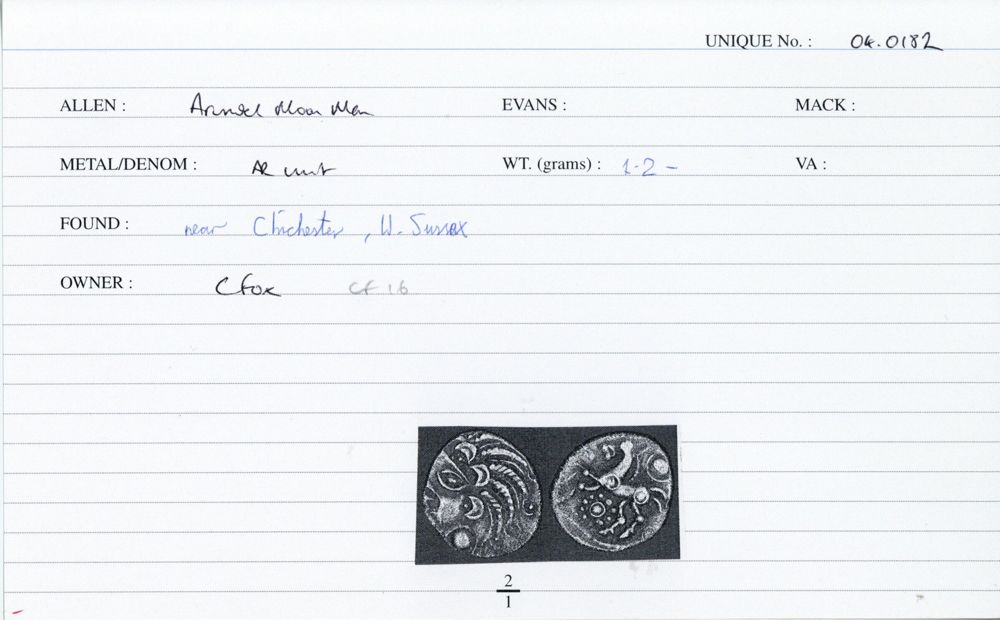 UNIQUE No. : 04.0182
ALLEN : Arundel Moon Man EVANS : MACK :
METAL/DENOM : AR unit WT. (grams) : 1-2 - VA :
FOUND : near Chichester, W. Sussex
OWNER : C Fox CF 16
2
1